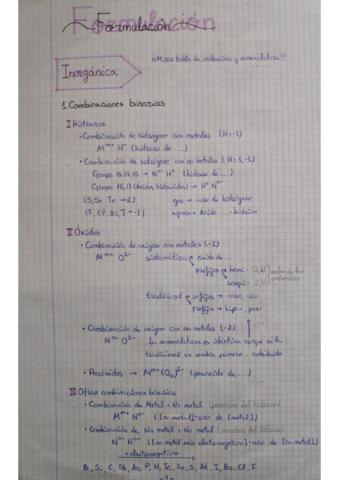 Formulación
¡¡Mirar tabla de valencias y nomenclatura!!
Inorgánica
1. Combinaciones binarias
I Hidruros
• Combinación de hidrógeno con metales (H=-1)
Mᵐ⁺ H⁻ (hidruro de ...)
• Combinación de hidrógeno con no metales (H=1,-1)
Grupo 13,14,15 → Nⁿ⁻ H⁺ (hidruro de ...)
Grupo 16,17 (Ácidos hidrácidos) → H⁺ Nⁿ⁻
(S, Se, Te → -2) gas → -uro de hidrógeno
(F, Cl, Br, I → -1) acuoso → Ácido ... -hídrico
II Óxidos
• Combinación de oxígeno con metales (-2)
Mᵐ⁺ O²⁻ sistemática → óxido de...
prefijos → hemi-
sesqui-
tradicional → sufijos → -oso, -ico
prefijos → hipo-, per-
• Combinación de oxígeno con no metales (-2)
Nⁿ⁺ O²⁻ la nomenclatura es idéntica aunque en la
tradicional se nombra primero anhídrido
• Peróxidos → Mᵐ⁺(O₂)²⁻ (peróxido de...)
III Otras combinaciones binarias
• Combinación de Metal + No metal
Mᵐ⁺ Nⁿ⁻ ([no metal]-uro de [metal])
• Combinación de No metal + No metal
Nⁿ⁺ Nⁿ⁻ ([no metal más electronegativo]-uro de [no metal])
+ electronegativo
B, Si, C, Sb, As, P, N, Te, Se, S, At, I, Br, Cl, F